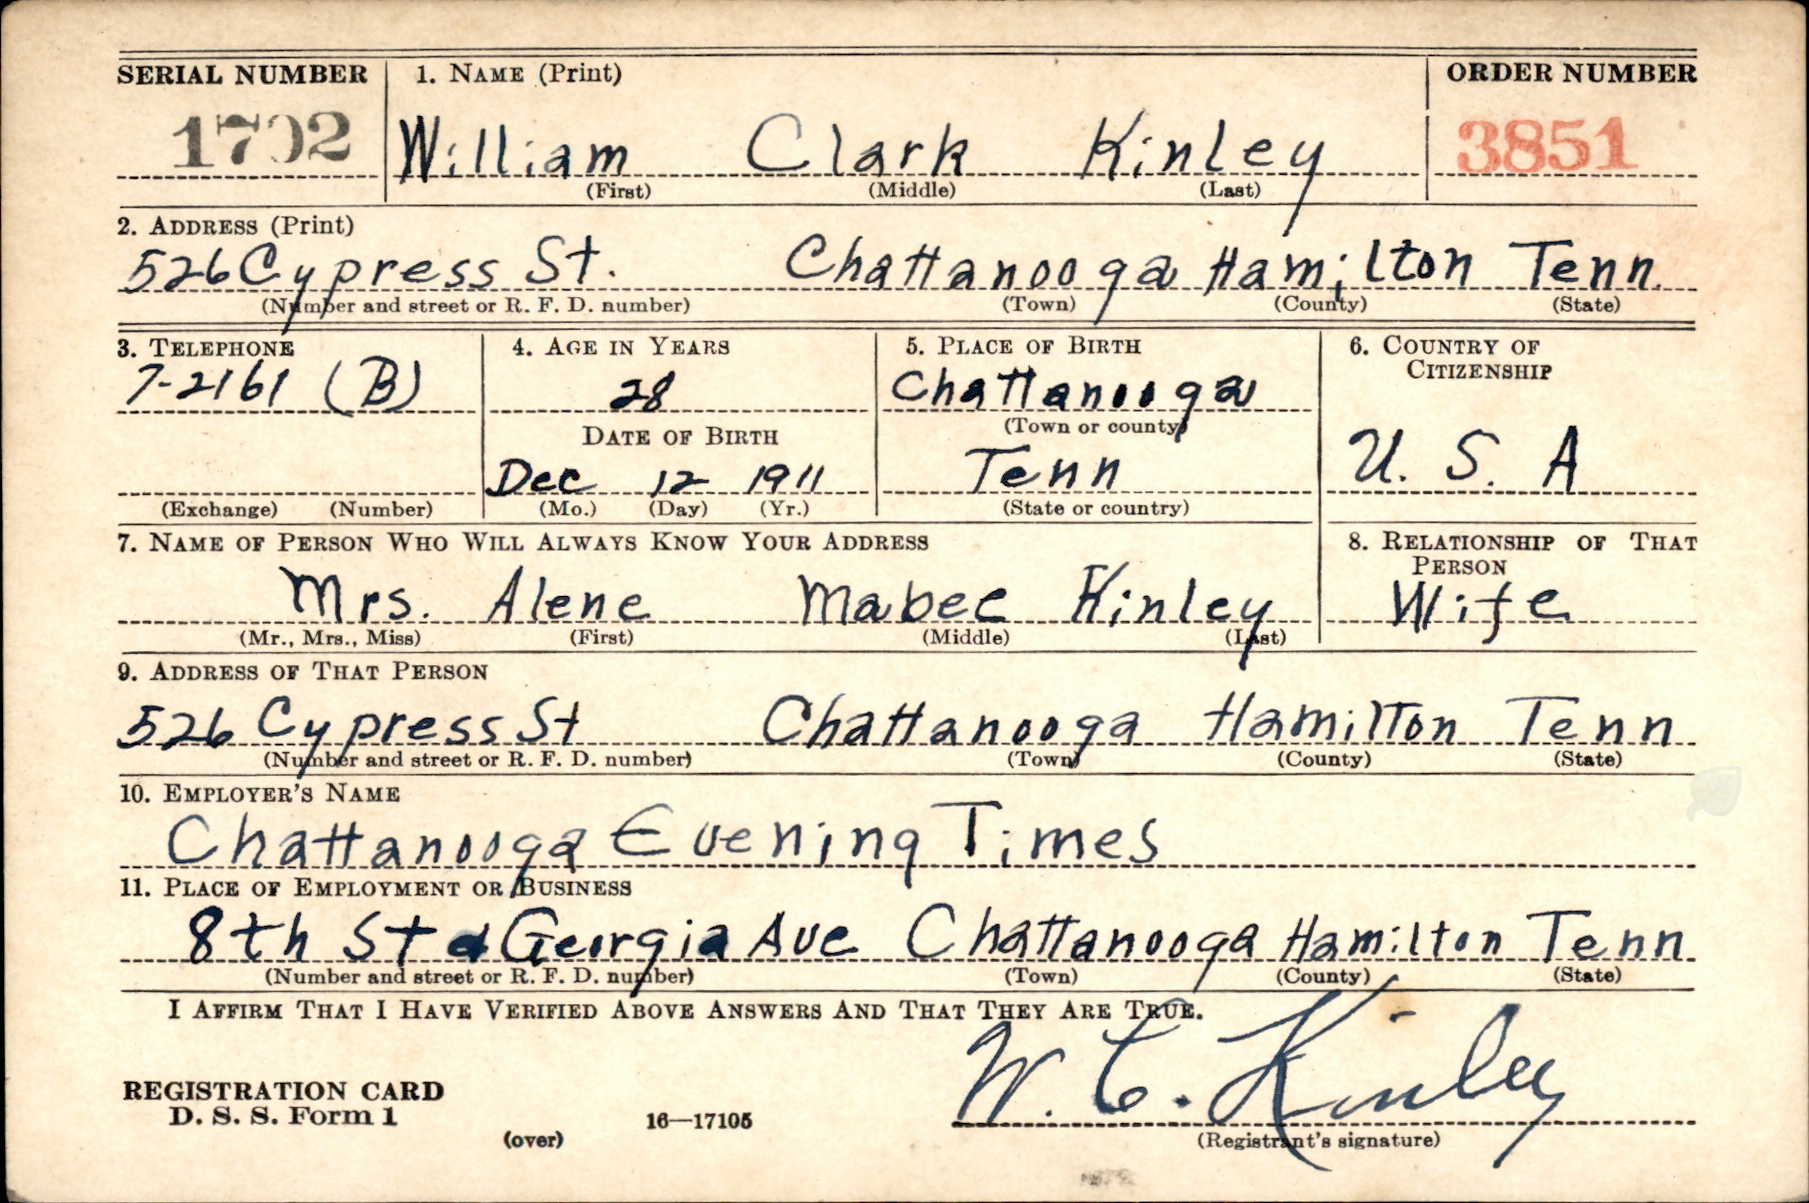 SERIAL NUMBER 1. NAME (Print) ORDER NUMBER
1702 William Clark Kinley 3851
(First) (Middle) (Last)
2. ADDRESS (Print)
526 Cypress St. Chattanooga Hamilton Tenn.
(Number and street or R. F. D. number) (Town) (County) (State)
3. TELEPHONE 4. AGE IN YEARS 5. PLACE OF BIRTH 6. COUNTRY OF
CITIZENSHIP
7-2161 (B) 28 Chattanooga
DATE OF BIRTH (Town or county)
Dec 12 1911 Tenn U. S. A
(Exchange) (Number) (Mo.) (Day) (Yr.) (State or country)
7. NAME OF PERSON WHO WILL ALWAYS KNOW YOUR ADDRESS 8. RELATIONSHIP OF THAT
PERSON
Mrs. Alene Mabee Kinley Wife
(Mr., Mrs., Miss) (First) (Middle) (Last)
9. ADDRESS OF THAT PERSON
526 Cypress St Chattanooga Hamilton Tenn
(Number and street or R. F. D. number) (Town) (County) (State)
10. EMPLOYER'S NAME
Chattanooga Evening Times
11. PLACE OF EMPLOYMENT OR BUSINESS
8th St & Georgia Ave Chattanooga Hamilton Tenn
(Number and street or R. F. D. number) (Town) (County) (State)
I AFFIRM THAT I HAVE VERIFIED ABOVE ANSWERS AND THAT THEY ARE TRUE.
W. C. Kinley
REGISTRATION CARD
D. S. S. Form 1 16—17105
(over) (Registrant's signature)